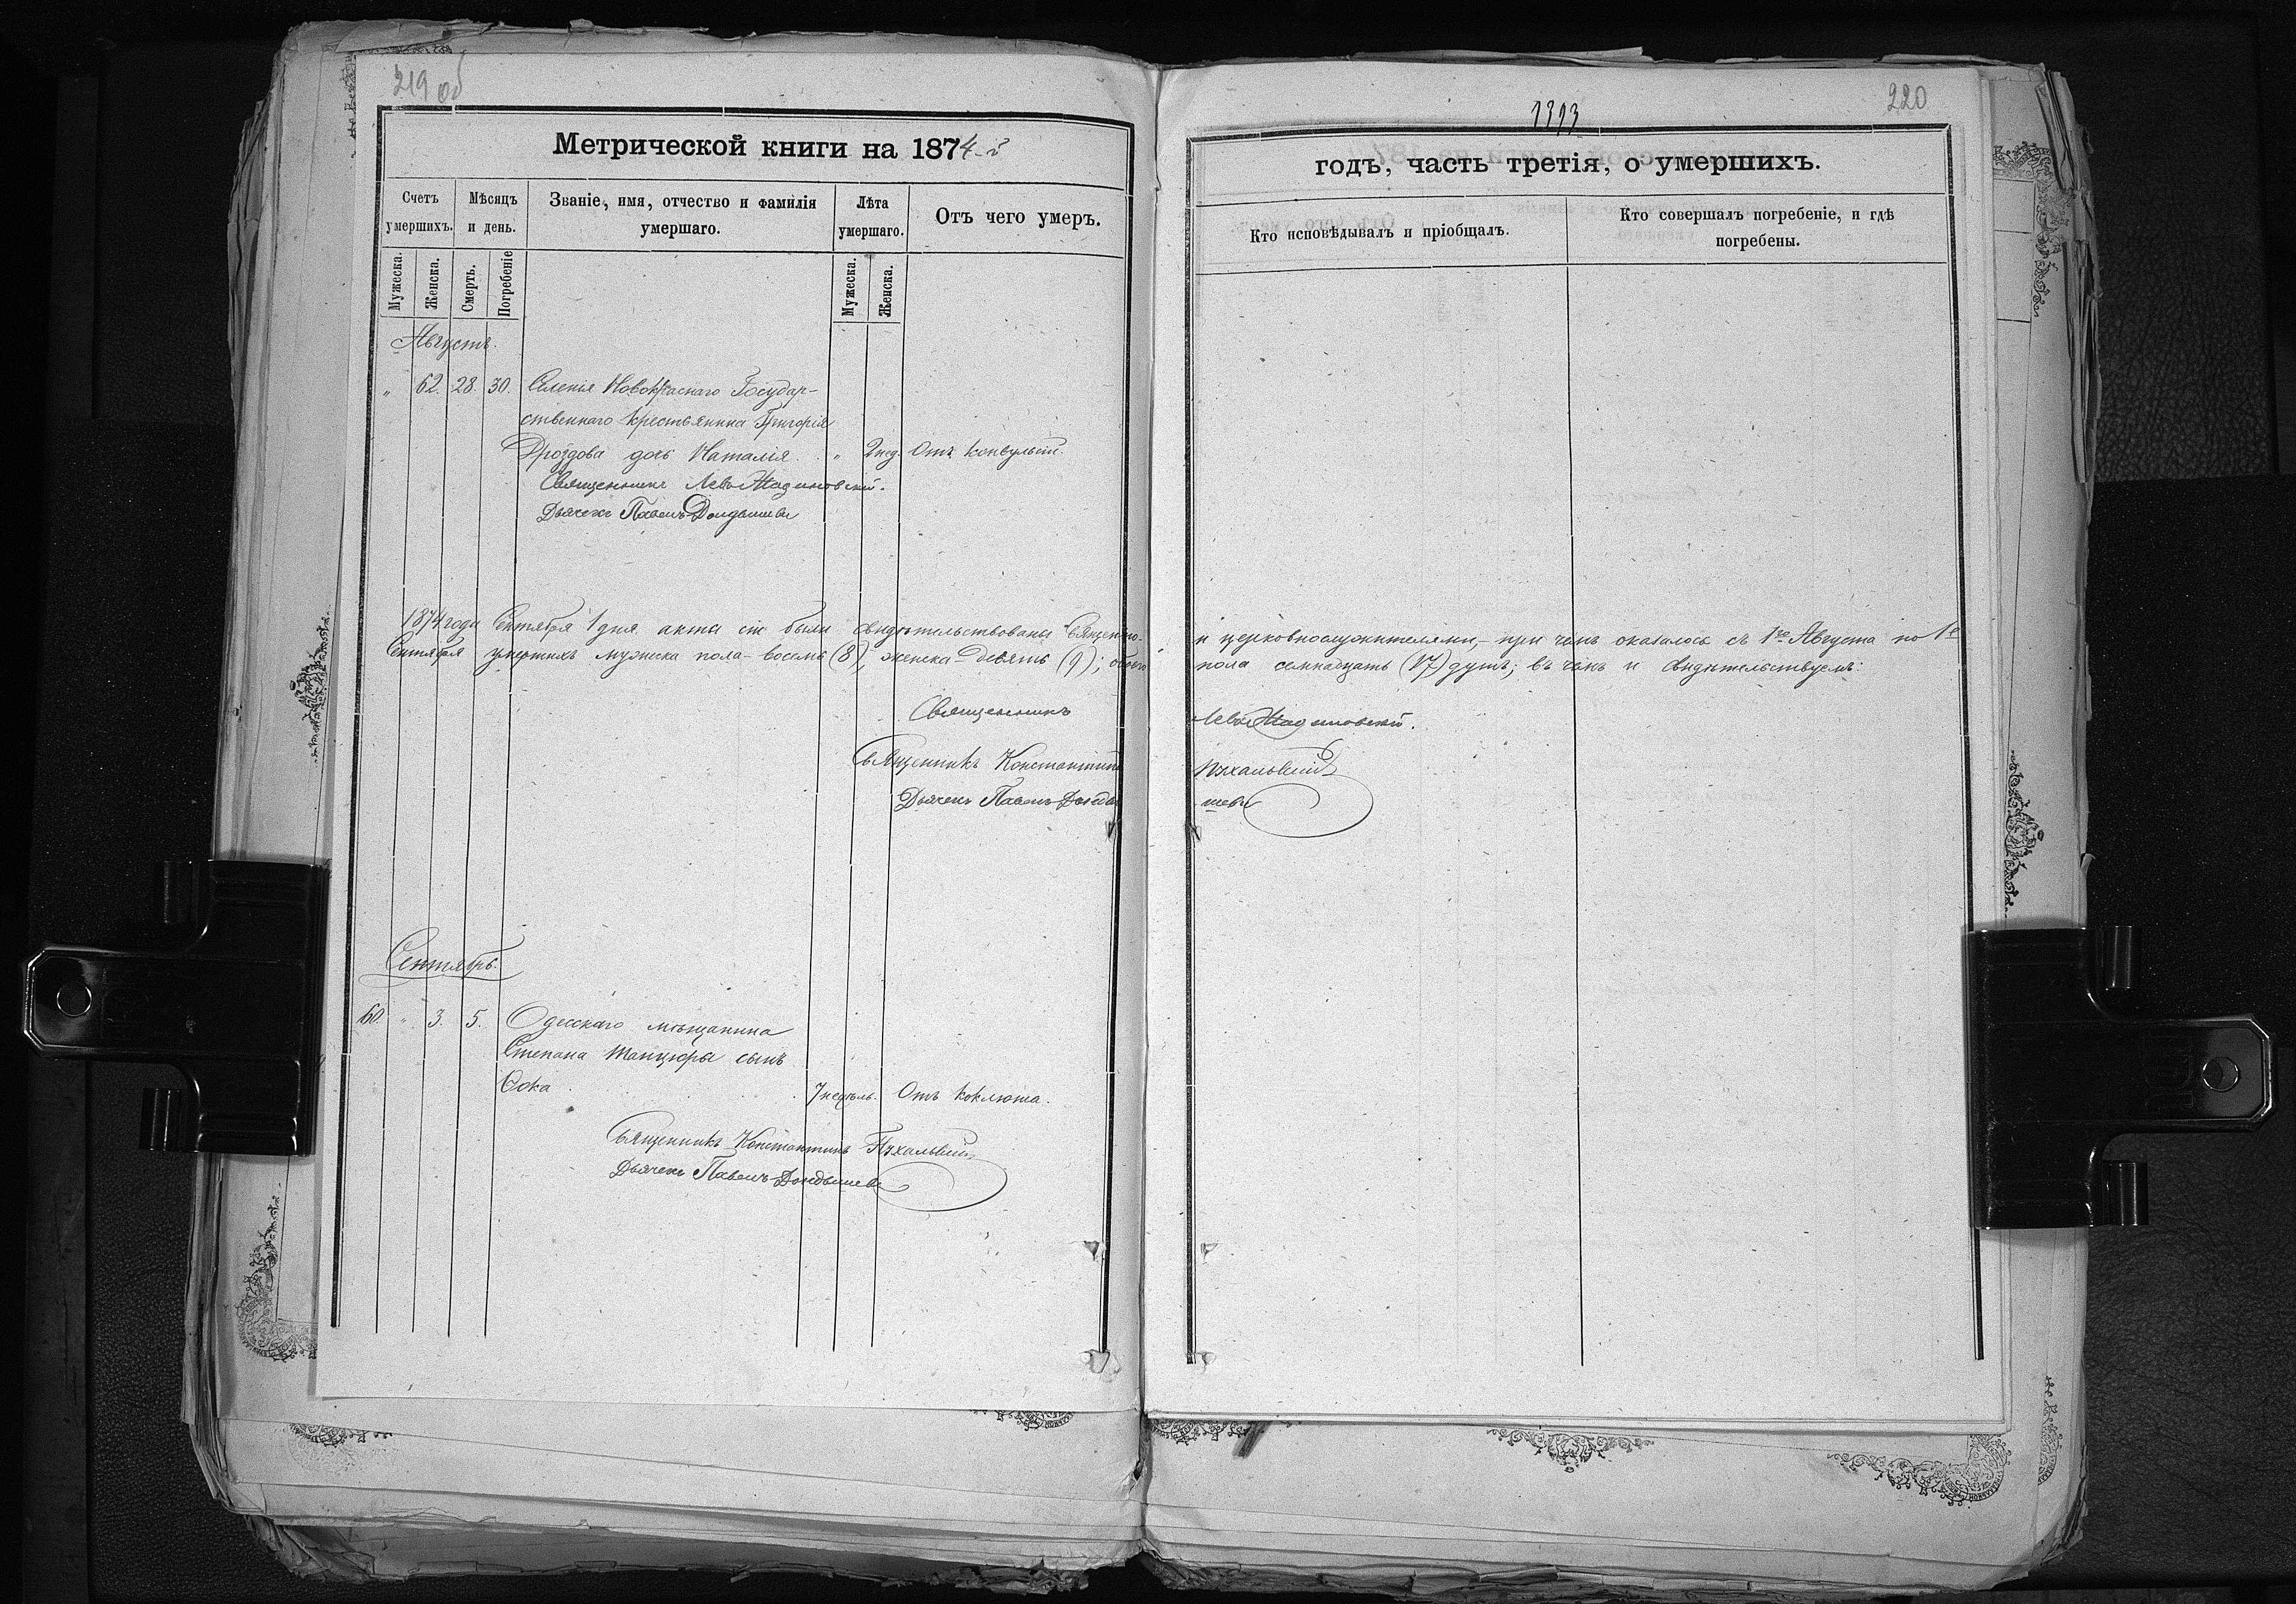 219 об
Метрической книги на 1874-й
Счетъ умершихъ.
Мѣсяцъ и день.
Званіе, имя, отчество и фамилія умершаго.
Лѣта умершаго.
Отъ чего умеръ.
Мужеска.
Женска.
Смерть.
Погребеніе
Мужеска.
Женска.
Августъ.
" 62. 28. 30. Селенія Новокраснаго Государ-
ственнаго крестьянина Григорія
Дроздова дочь Наталія. " 2 нед. Отъ конвульсій.
Священникъ Левъ
Дьячекъ Павелъ
1874 года Сентября 1 дня акты сіи были свидѣтельствованы Священно-
Сентября умершихъ мужеска пола - восемь (8), женска - девять (9); обоего
Священникъ
Священникъ Константинъ
Дьячекъ Павелъ
Сентябрь.
60. " 3. 5. Одесскаго мѣщанина
Степана Танцюры сынъ
Ѳока 7 недѣль. Отъ коклюша.
Священникъ Константинъ Пухальскій
Дьячекъ Павелъ
1313
220
годъ, часть третія, о умершихъ.
Кто исповѣдывалъ и пріобщалъ.
Кто совершалъ погребеніе, и гдѣ погребены.
и церковнослужителями, - при чемъ оказалось съ 1го Августа по 1е
пола семнадцать (17) душъ; въ чемъ и свидѣтельствуемъ:
Левъ
Пухальскій
шевъ